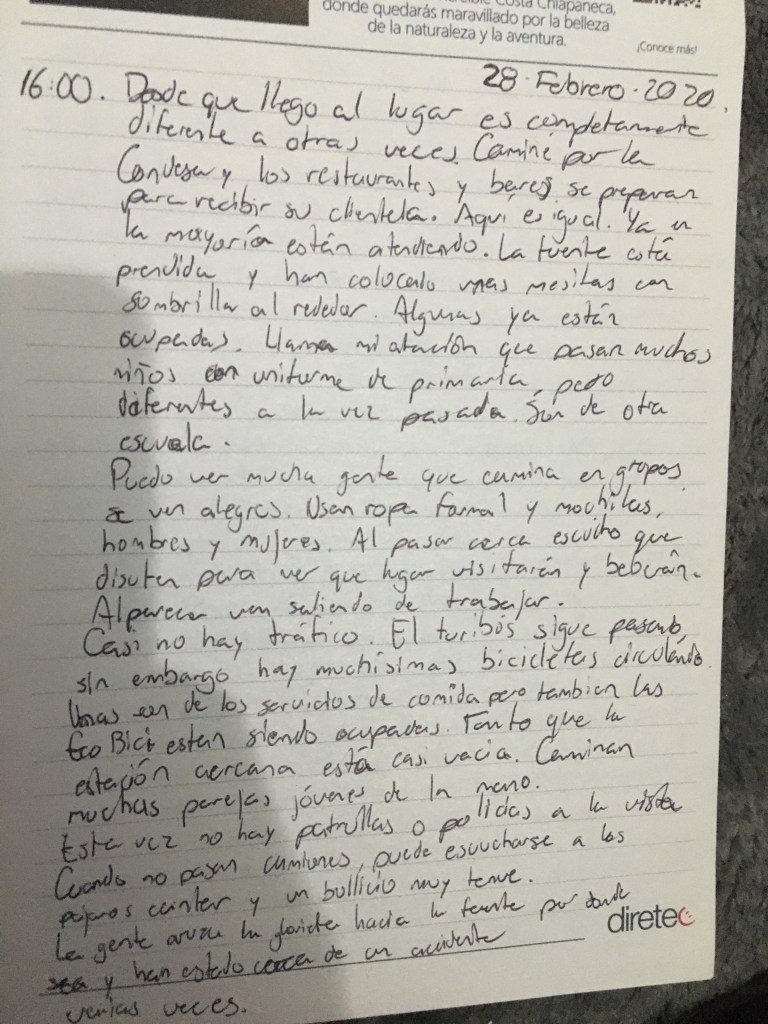 Costa Chiapaneca,
donde quedarás maravillado por la belleza
de la naturaleza y la aventura.
¡Conoce más!
28 · Febrero · 2020.
16:00. Desde que llego al lugar es completamente
diferente a otras veces. Camine por la
Condesa y los restaurantes y bares se preparan
para recibir su clientela. Aqui es igual. Ya en
la mayoría están atendiendo. La fuente está
prendida y han colocado unas mesitas con
sombrilla al rededor. Algunas ya están
ocupadas. Llama mi atención que pasan muchos
niños con uniforme de primaria, pero
diferentes a la vez pasada. Son de otra
escuela.
Puedo ver mucha gente que camina en grupos
van alegres. Usan ropa formal y mochilas,
hombres y mujeres. Al pasar cerca escucho que
disuten para ver que lugar visitarán y beberán.
Al parecer van saliendo de trabajar.
Casi no hay tráfico. El turibús sigue pasando,
sin embargo hay muchísimas bicicletas circulando.
Unas son de los servicios de comida pero tambien las
Eco Bici estan siendo ocupadas. Tanto que la
estación cercana está casi vacia. Caminan
muchas parejas jóvenes de la mano.
Esta vez no hay patrullas o policías a la vista
Cuando no pasan camiones, puede escucharse a los
pájaros cantar y un bullicio muy tenue.
La gente cruza la glorieta hacia la fuente por donde
y han estado cerca de un accidente
varias veces.
diretec